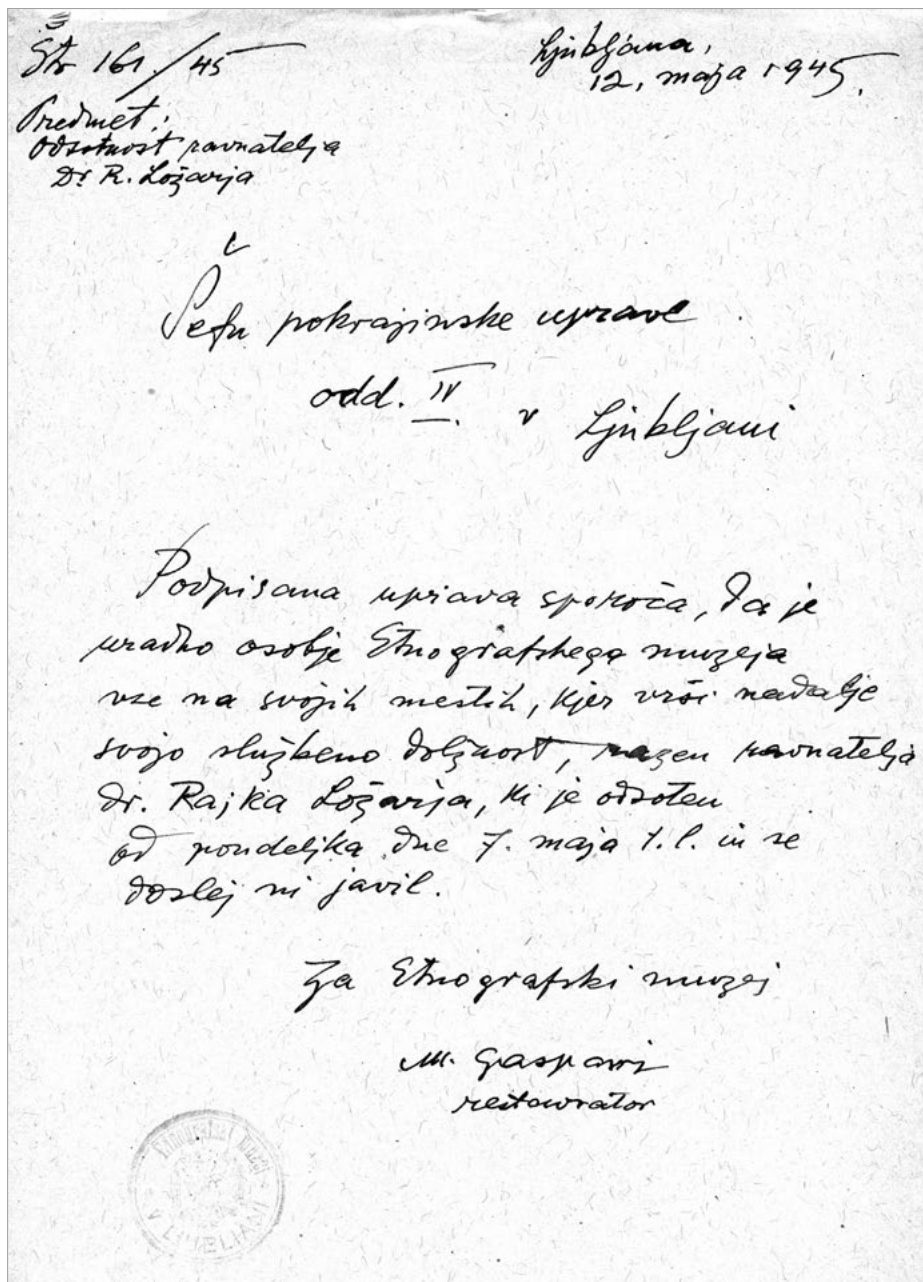 Štr 161/45
Ljubljana,
12. maja 1945.
Predmet:
Odsotnost ravnatelja
Dr R. Ložarja
Šefu pokrajinske uprave
odd. IV. v Ljubljani
Podpisana uprava sporoča, da je
uradno osobje Etnografskega muzeja
vse na svojih mestih, kjer vrši nadalje
svojo službeno dolžnost, razen ravnatelja
dr. Rajka Ložarja, ki je odsoten
od pondeljka dne 7. maja t.l. in se
doslej ni javil.
Za Etnografski muzej
M. Gaspari
restavrator
Etnografski muzej
v LJUBLJANI